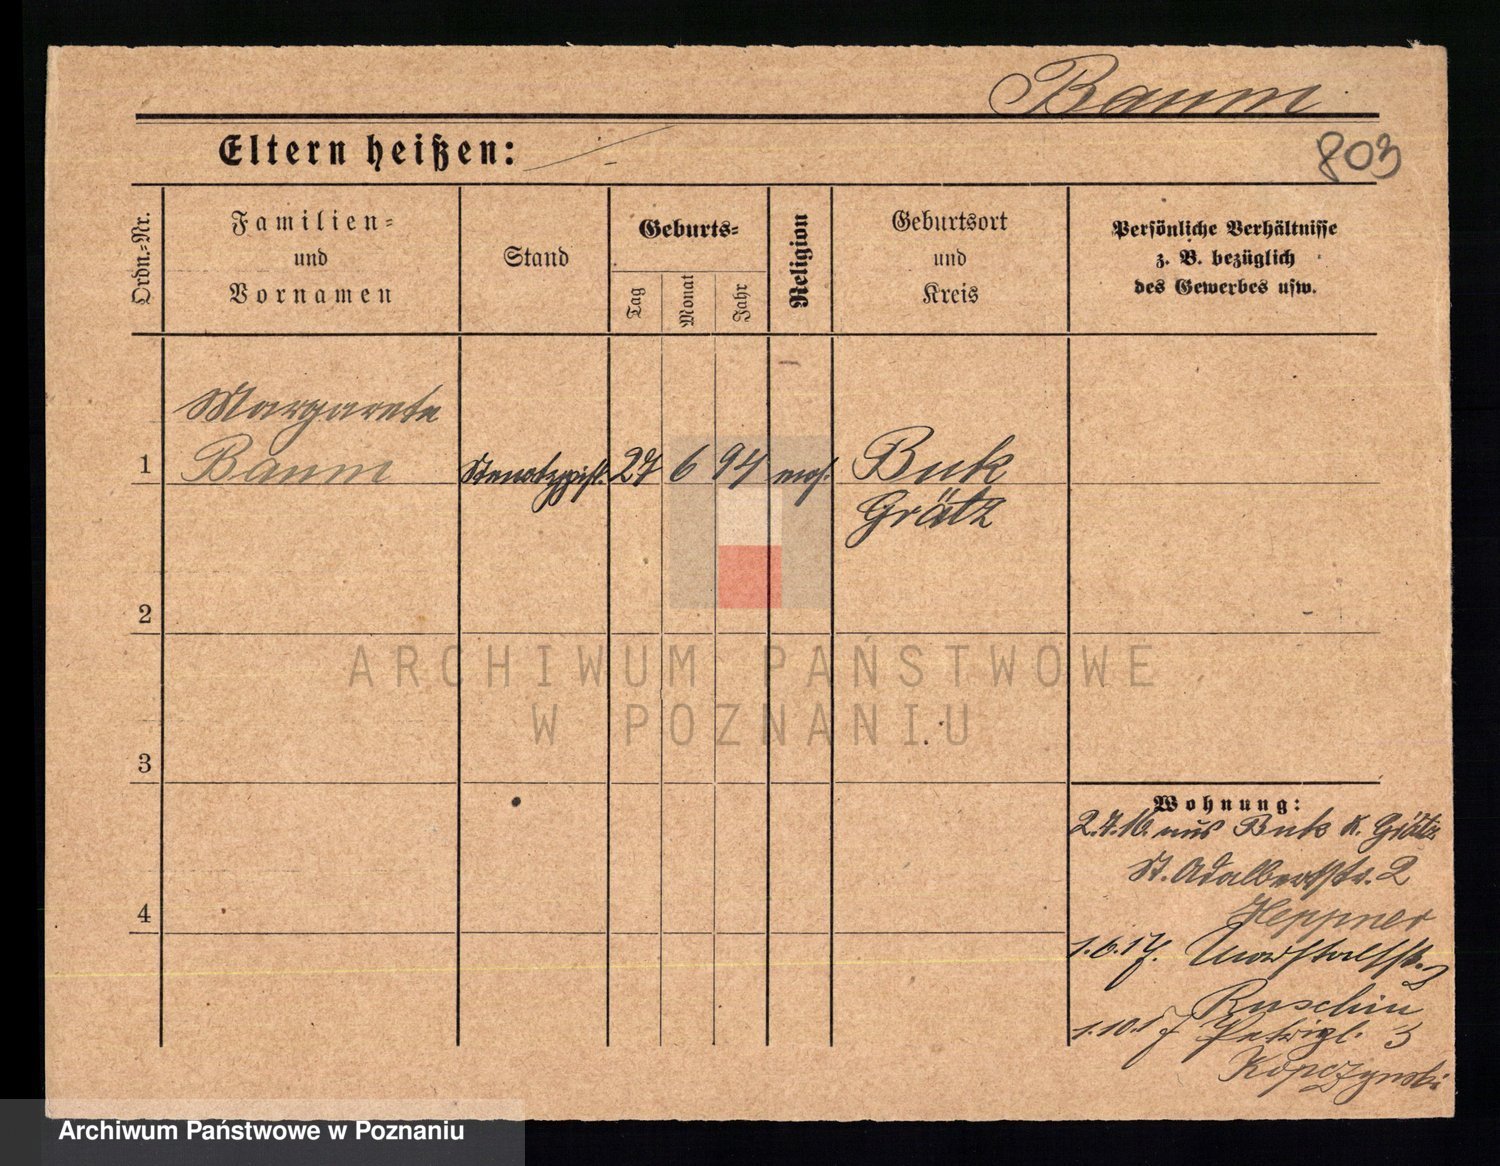 Baum
803
Eltern heißen:
Ordn.-Nr.
Familien-
und
Vornamen
Stand
Geburts-
Tag
Monat
Jahr
Religion
Geburtsort
und
Kreis
Persönliche Verhältnisse
z. B. bezüglich
des Gewerbes usw.
1
Margarete
Baum
Stenotypist.
27
6
94
mos.
Buk
Grätz
2
ARCHIWUM PAŃSTWOWE
W POZNANIU
3
Wohnung:
2.7.16. aus Buk K. Grätz
St. Adalbertstr. 2
Heppner
4
1.6.17.
Ruschin
1.10.17 Petripl. 3
Kopczynski
Archiwum Państwowe w Poznaniu